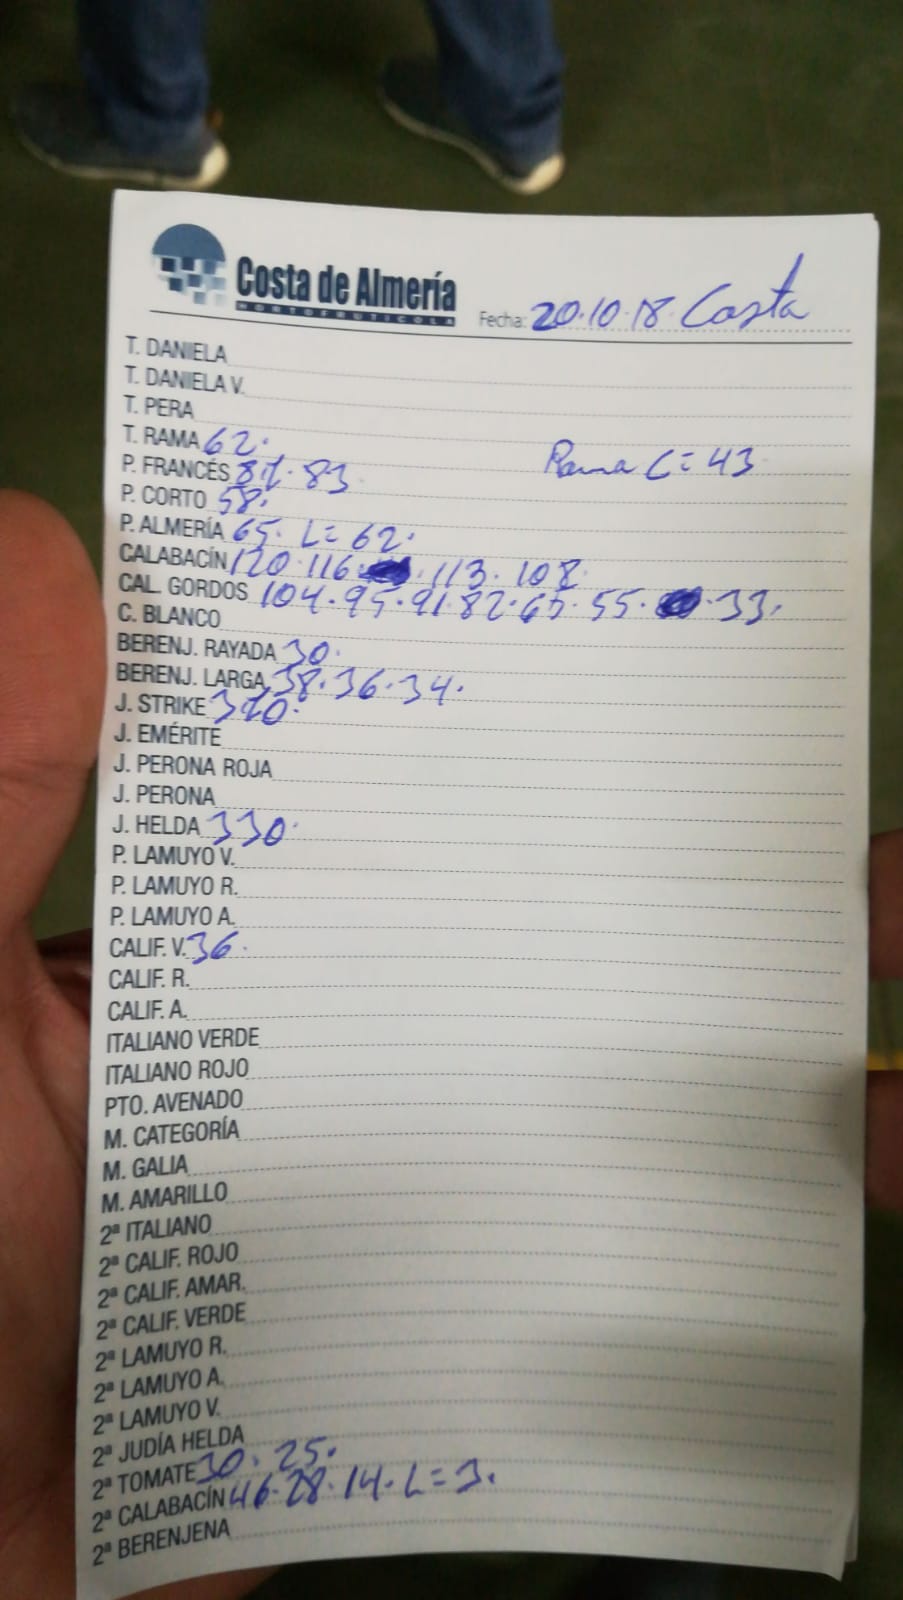 Costa de Almería
HORTOFRUTICOLA
Fecha: 20.10.18. Costa
T. DANIELA
T. DANIELA V.
T. PERA
T. RAMA 62. Rama L=43
P. FRANCÉS 87. 83
P. CORTO 58.
P. ALMERÍA 65. L=62.
CALABACÍN 120.116. .113.108
CAL. GORDOS 104.95.91.82.65.55. .33.
C. BLANCO
BERENJ. RAYADA 30.
BERENJ. LARGA 38.36.34.
J. STRIKE 370.
J. EMÉRITE
J. PERONA ROJA
J. PERONA
J. HELDA 330.
P. LAMUYO V.
P. LAMUYO R.
P. LAMUYO A.
CALIF. V. 36.
CALIF. R.
CALIF. A.
ITALIANO VERDE
ITALIANO ROJO
PTO. AVENADO
M. CATEGORÍA
M. GALIA
M. AMARILLO
2ª ITALIANO
2ª CALIF. ROJO
2ª CALIF. AMAR.
2ª CALIF. VERDE
2ª LAMUYO R.
2ª LAMUYO A.
2ª LAMUYO V.
2ª JUDÍA HELDA
2ª TOMATE 30. 25.
2ª CALABACÍN 46.28.14.L=3.
2ª BERENJENA